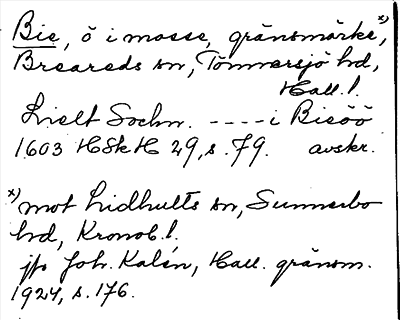 Bie, ö i mosse, gränsmärke x),
Breareds sn, Tönnersjö hd,
Hall. l.
Lielt Sochn. ---- i Bieöö
1603 HSkH 29, s. 79. avskr.
x) mot Lidhults sn, Sunnerbo
hd, Kronob. l.
jfr Joh. Kalén, Hall. gränsm.
1924, s. 176.